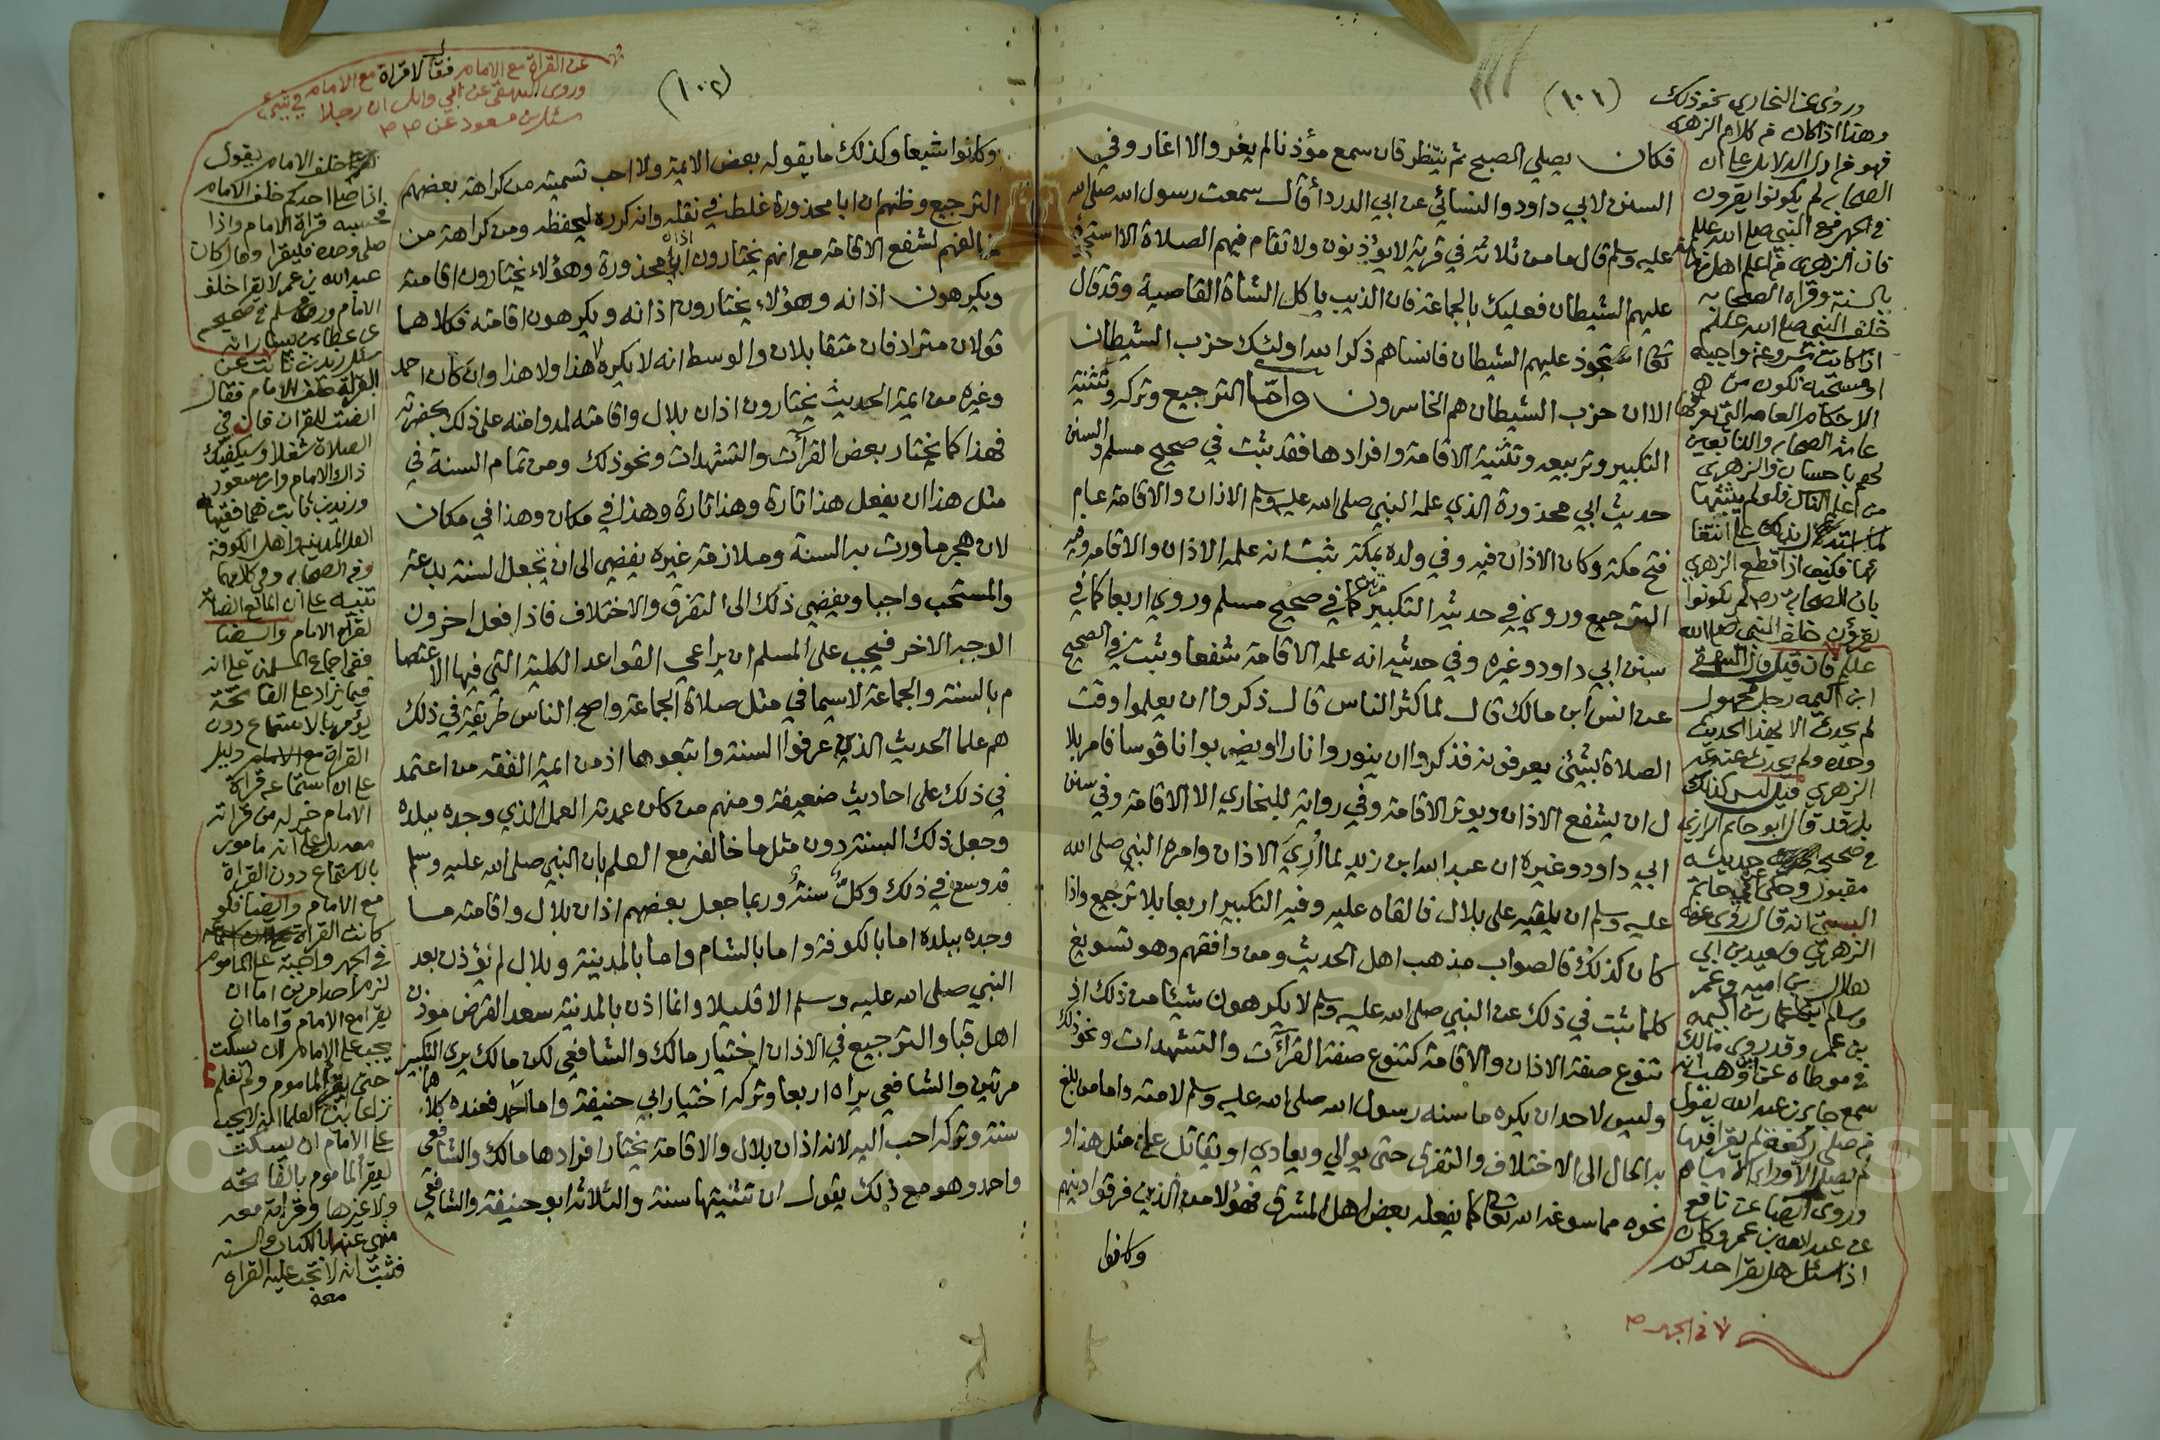 (١٠١)
فكان يصلي الصبح ثم ينتظر فان سمع مؤذنا لم يغر والا اغار وفي
السنن لابي داود والنسائي عن ابي الدردأ قال سمعت رسول الله صلى الله
عليه وسلم قال ما من ثلاثة في قرية لا يؤذنون ولا تقام فيهم الصلاة الا استحوذ
عليهم الشيطان فعليك بالجماعة فان الذيب ياكل الشاة القاصية وقد قال
تعالى استحوذ عليهم الشيطان فانساهم ذكر الله اولئك حزب الشيطان
الا ان حزب الشيطان هم الخاسرون وامّا الترجيع وتركه وتثنية
التكبير وتربيعه وتثنية الاقامة وافرادها فقد ثبت في صحيح مسلم والسنن
حديث ابي محذورة الذي علمه النبي صلى الله عليه وسلم الاذان والاقامة عام
فتح مكة وكان الاذان فيه وفي ولده بمكة ثبت انه علمه الاذان والاقامة وفيه
الترجيع وروي في حديثه التكبير مرتين كما في صحيح مسلم وروي اربعا كما في
سنن ابي داود وغيره وفي حديثه انه علمه الاقامة شفعا وثبت في الصحيح
عن انس ابن مالك قال لما كثر الناس قال ذكروا ان يعلموا وقت
الصلاة بشئ يعرفونه فذكروا ان ينوروا نارا او يضربوا ناقوسا فامر بلا
ل ان يشفع الاذان ويوتر الاقامة وفي رواية للبخاري الا الاقامة وفي سنن
ابي داود وغيره ان عبد الله ابن زيد لما أُرِيَ الاذان وامره النبي صلى الله
عليه وسلم ان يلقيه على بلال فالقاه عليه وفيه التكبير اربعا بلا ترجيع واذا
كان كذلك فالصواب مذهب اهل الحديث ومن وافقهم وهو تسويغ
كلما ثبت في ذلك عن النبي صلى الله عليه وسلم لا يكرهون شيئا من ذلك اذ
تنوع صفة الاذان والاقامة كتنوع صفة القرآت والتشهدات ونحو ذلك
وليس لاحد ان يكره ما سنه رسول الله صلى الله عليه وسلم لامته واما من بلغ
به الحال الى الاختلاف والتفرق حتى يوالي ويعادي او يقاتل على مثل هذا و
نحوه مما سوغه الله تعالى كما يفعله بعض اهل المشرق فهؤلا من الذين فرقوا دينهم
وكانوا
وروي عن البخاري نحو ذلك
وهذا اذا كان من كلام الزهري
فهو من ادل الدلايل على ان
الصحابه لم يكونوا يقرون
في الجهر مع النبي صلى الله عليه وسلم
فان الزهري من اعلم اهل زمانه
بالسنة وقراة الصحابه
خلف النبي صلى الله عليه وسلم
اذا كانت مشروعة واجبة
او مستحبة تكون من
الاحكام العامه التي يعرفها
عامة الصحابه والتابعين
لهم باحسان والزهري
من اعلم الناس فلو لم يبينها
لاستدل بذلك على انتفا
ئها فكيف اذا قطع الزهري
بان الصحابة رضي لم يكونوا
يقرؤن خلف النبي صلى الله
عليه فان قيل قال البيهقي
ابن اكيمه رجل مجهول
لم يحدث الا بهذا الحديث
وحده ولم يحدث عنه غير
الزهري قيل ليس كذلك
بل قد قال ابو حاتم الرازي
صحيح الحديث حديثه
مقبول وحكى عن ابي حاتم
البستي انه قال روى عنه
الزهري وسعيد بن ابي
هلال بن اميه وعمر
وسالم ابنا عمار بن اكيمه
بن عمر وقد روى مالك
في موطاه عن وهب انه
سمع جابر بن عبد الله يقول
من صلى ركعة لم يقرا فيها
لم يصل الا وراء الامام
وروى ايضا عن نافع
عن عبد الله بن عمر وكان
اذا سئل هل يقرا احد
لا في الجهر
(١٠٢)
وكانوا شيعا وكذلك ما يقوله بعض الايمة ولا احب تسميته من كراهة بعضهم
الترجيع وظنهم ان ابا محذورة غلط في نقله وانه كرره ليحفظه ومن كراهة من
خالفهم لشفع الاقامة مع انهم يختارون اذان ابي محذورة وهؤلاء يختارون اقامته
ويكرهون اذانه وهؤلاء يختارون اذانه ويكرهون اقامته فكلاهما
قولان مترادفان متقابلان والوسط انه لا يكره لا هذا ولا هذا وان كان احمد
وغيره من ايمة الحديث يختارون اذان بلال واقامته لمداومته على ذلك بحضرته
فهذا كما يختار بعض القرآت والتشهدات ونحو ذلك ومن تمام السنة في
مثل هذا ان يفعل هذا تارة وهذا تارة وهذا في مكان وهذا في مكان
لان هجر ما وردت به السنة وملازمة غيره يفضي الى ان تجعل السنة بدعة
والمستحب واجبا ويفضي ذلك الى التفرق والاختلاف فاذا فعل اخرون
الوجه الاخر فيجب على المسلم ان يراعي القواعد الكلية التي فيها الاعتصا
م بالسنة والجماعة لاسيما في مثل صلاة الجماعة واصح الناس طريقة في ذلك
هم علما الحديث الذين عرفوا السنة واتبعوها اذ من ايمة الفقه من اعتمد
في ذلك على احاديث ضعيفة ومنهم من كان عمدته العمل الذي وجده ببلده
وجعل ذلك السنة دون مثل ما خالفه مع العلم بان النبي صلى الله عليه وسلم
قد وسع في ذلك وكلٌ سنةٌ وربما جعل بعضهم اذان بلال واقامته ما
وجده ببلده اما بالكوفة واما بالشام واما بالمدينة وبلال لم يؤذن بعد
النبي صلى الله عليه وسلم الا قليلا وانما اذن بالمدينة سعد القرض موذن
اهل قبا والترجيع في الاذان اختيار مالك والشافعي لكن مالك يرى التكبير
مرتين والشافعي يراه اربعا وتركه اختيار ابي حنيفة واما احمد فعنده كلاهما
سنة وتركه احب اليه لانه اذان بلال والاقامة يختار افرادها مالك والشافعي
واحمد وهو مع ذلك يقول ان تثنيتها سنة والثلاثة ابو حنيفة والشافعي
عن القراة مع الامام فقال لا قراة مع الامام في شيء
وروى البيهقي عن ابي وائل ان رجلا
سئل بن مسعود عن
خلف الامام يقول
اذا صلى احدكم خلف الامام
فحسبه قراة الامام واذا
صلى وحده فليقرا وقال كان
عبد الله بن عمر لا يقرا خلف
الامام وروى مسلم في صحيحه
عن عطاء بن يسار انه
سئل زيد بن ثابت عن
القراة خلف الامام فقال
انصت للقران فان في
الصلاة شغلا وسيكفيك
ذاك الامام وابن مسعود
وزيد بن ثابت هما فقيها
اهل المدينه واهل الكوفة
من الصحابه وفي كلامهما
تنبيه على ان المانع انصاته
لقراة الامام وايضا
ففي اجماع المسلمين على انه
فيما زاد على الفاتحة
يؤمر بالاستماع دون
القراة دليل
على ان استماعه قراة
الامام خير له من قراته
معه بل على انه مامور
بالاستماع دون القراة
مع الامام وايضا فلو
كانت القراة
في الجهر واجبة على الماموم
لزم احد امرين اما ان
يقرا مع الامام واما ان
يجب على الامام ان يسكت
حتى يقرا الماموم ولم نعلم
نزاعا بين العلما انه لا يجب
على الامام ان يسكت
ليقرأ الماموم بالفاتحة
ولا غيرها وقراته معه
منهي عنها بالكتاب والسنة
فثبت انه لا تجب عليه القراة
معه